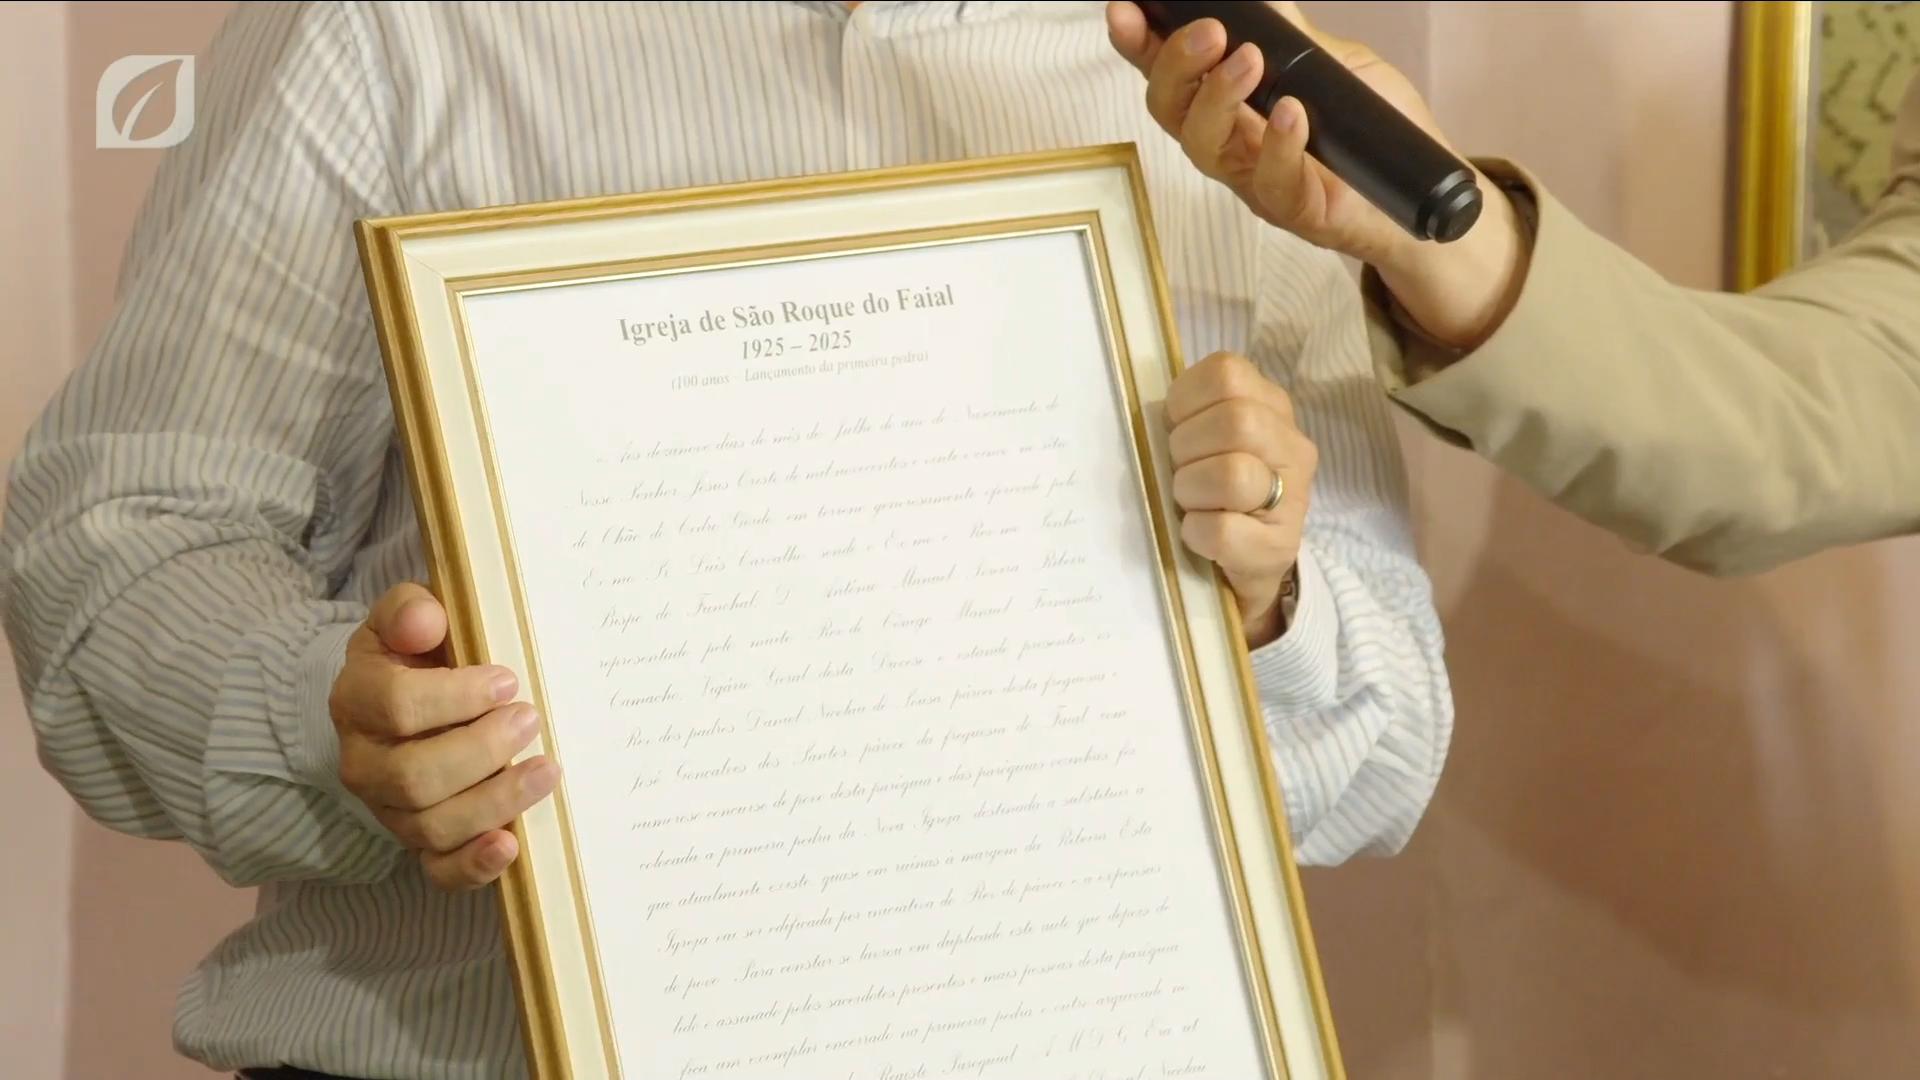 Igreja de São Roque do Faial
1925 – 2025
(100 anos – Lançamento da primeira pedra)
« Aos dezanove dias do mês de Julho do ano do Nascimento de
Nosso Senhor Jesus Cristo de mil novecentos e vinte e cinco, no sítio
do Chão do Cedro Gordo, em terreno generosamente oferecido pelo
Ex.mo Sr. Luís Carvalho, sendo o Ex.mo e Rev.mo Senhor
Bispo do Funchal, D. António Manuel Pereira Ribeiro
representado pelo muito Rev.do Cónego Manuel Fernandes
Camacho, Vigário Geral desta Diocese e estando presentes os
Rev.dos padres Daniel Nicolau de Sousa, pároco desta freguesia e
José Gonçalves dos Santos, pároco da freguesia do Faial, com
numeroso concurso de povo desta paróquia e das paróquias vizinhas, foi
colocada a primeira pedra da Nova Igreja, destinada a substituir a
que atualmente existe, quase em ruínas à margem da Ribeira. Esta
Igreja vai ser edificada por iniciativa do Rev.do pároco e a expensas
do povo. Para constar se lavrou em duplicado este auto que depois de
lido e assinado pelos sacerdotes presentes e mais pessoas desta paróquia
fica um exemplar encerrado na primeira pedra e outro arquivado no
Registo Paroquial. A. M. D. G. Era ut
Daniel Nicolau